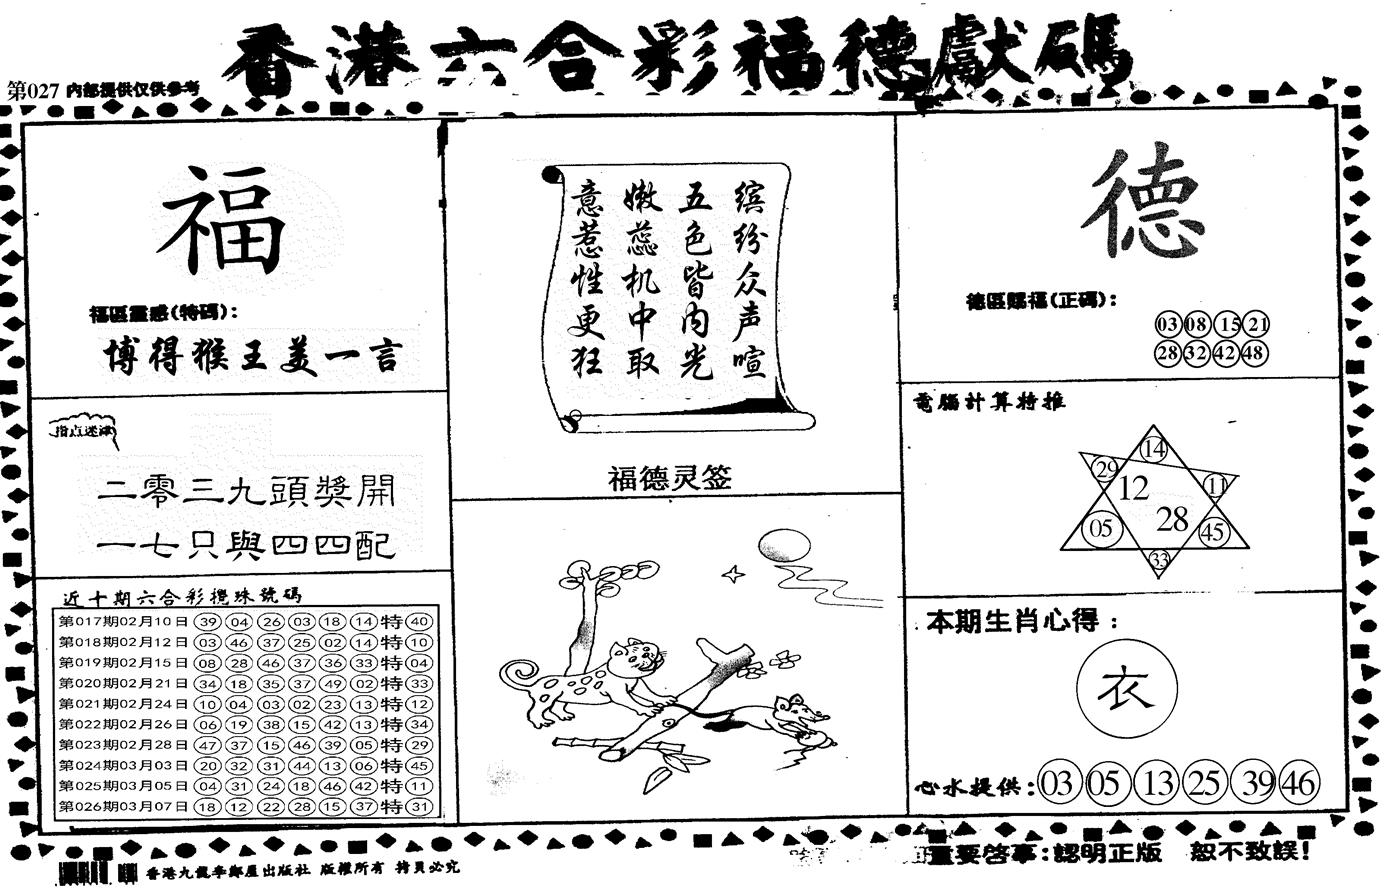 香港六合彩福德獻碼
第027 内部提供仅供参考
福
福區靈感(特碼):
博得猴王美一言
指点迷津
二零三九頭獎開
一七只與四四配
近十期六合彩攪珠號碼
第017期02月10日 39 04 26 03 18 14 特 40
第018期02月12日 03 46 37 25 02 14 特 10
第019期02月15日 08 28 46 37 36 33 特 04
第020期02月21日 34 18 35 37 49 02 特 33
第021期02月24日 10 04 03 02 23 13 特 12
第022期02月26日 06 19 38 15 42 13 特 34
第023期02月28日 47 37 15 46 39 05 特 29
第024期03月03日 20 32 31 44 13 06 特 45
第025期03月05日 04 31 24 18 46 42 特 11
第026期03月07日 18 12 22 28 15 37 特 31
缤纷众声喧
五色皆内光
嫩蕊机中取
意惹性更狂
福德灵签
德
德區賜福(正碼):
03 08 15 21
28 32 42 48
電腦計算特推
14
29
12
11
05
28
45
33
本期生肖心得:
衣
心水提供: 03 05 13 25 39 46
重要啓事:認明正版 恕不致誤!
版權所有 拷貝必究